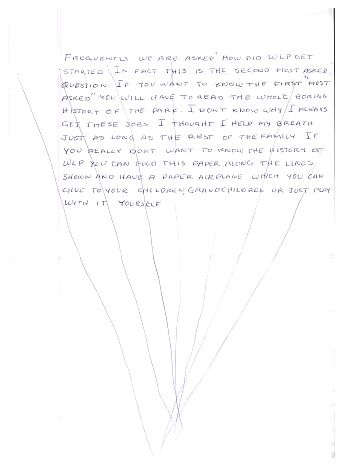 FREQUENTLY WE ARE ASKED "HOW DID WLP GET
STARTED IN FACT THIS IS THE SECOND MOST ASKED
QUESTION. IF YOU WANT TO KNOW THE FIRST "MOST
ASKED" YOU WILL HAVE TO READ THE WHOLE BORING
HISTORY OF THE PARK. I DON'T KNOW WHY I ALWAYS
GET THESE JOBS I THOUGHT I HELD MY BREATH
JUST AS LONG AS THE REST OF THE FAMILY IF
YOU REALLY DON'T WANT TO KNOW THE HISTORY OF
WLP YOU CAN FOLD THIS PAPER ALONG THE LINES
SHOWN AND HAVE A PAPER AIRPLANE WHICH YOU CAN
GIVE TO YOUR CHILDREN, GRANDCHILDREN OR JUST PLAY
WITH IT YOURSELF